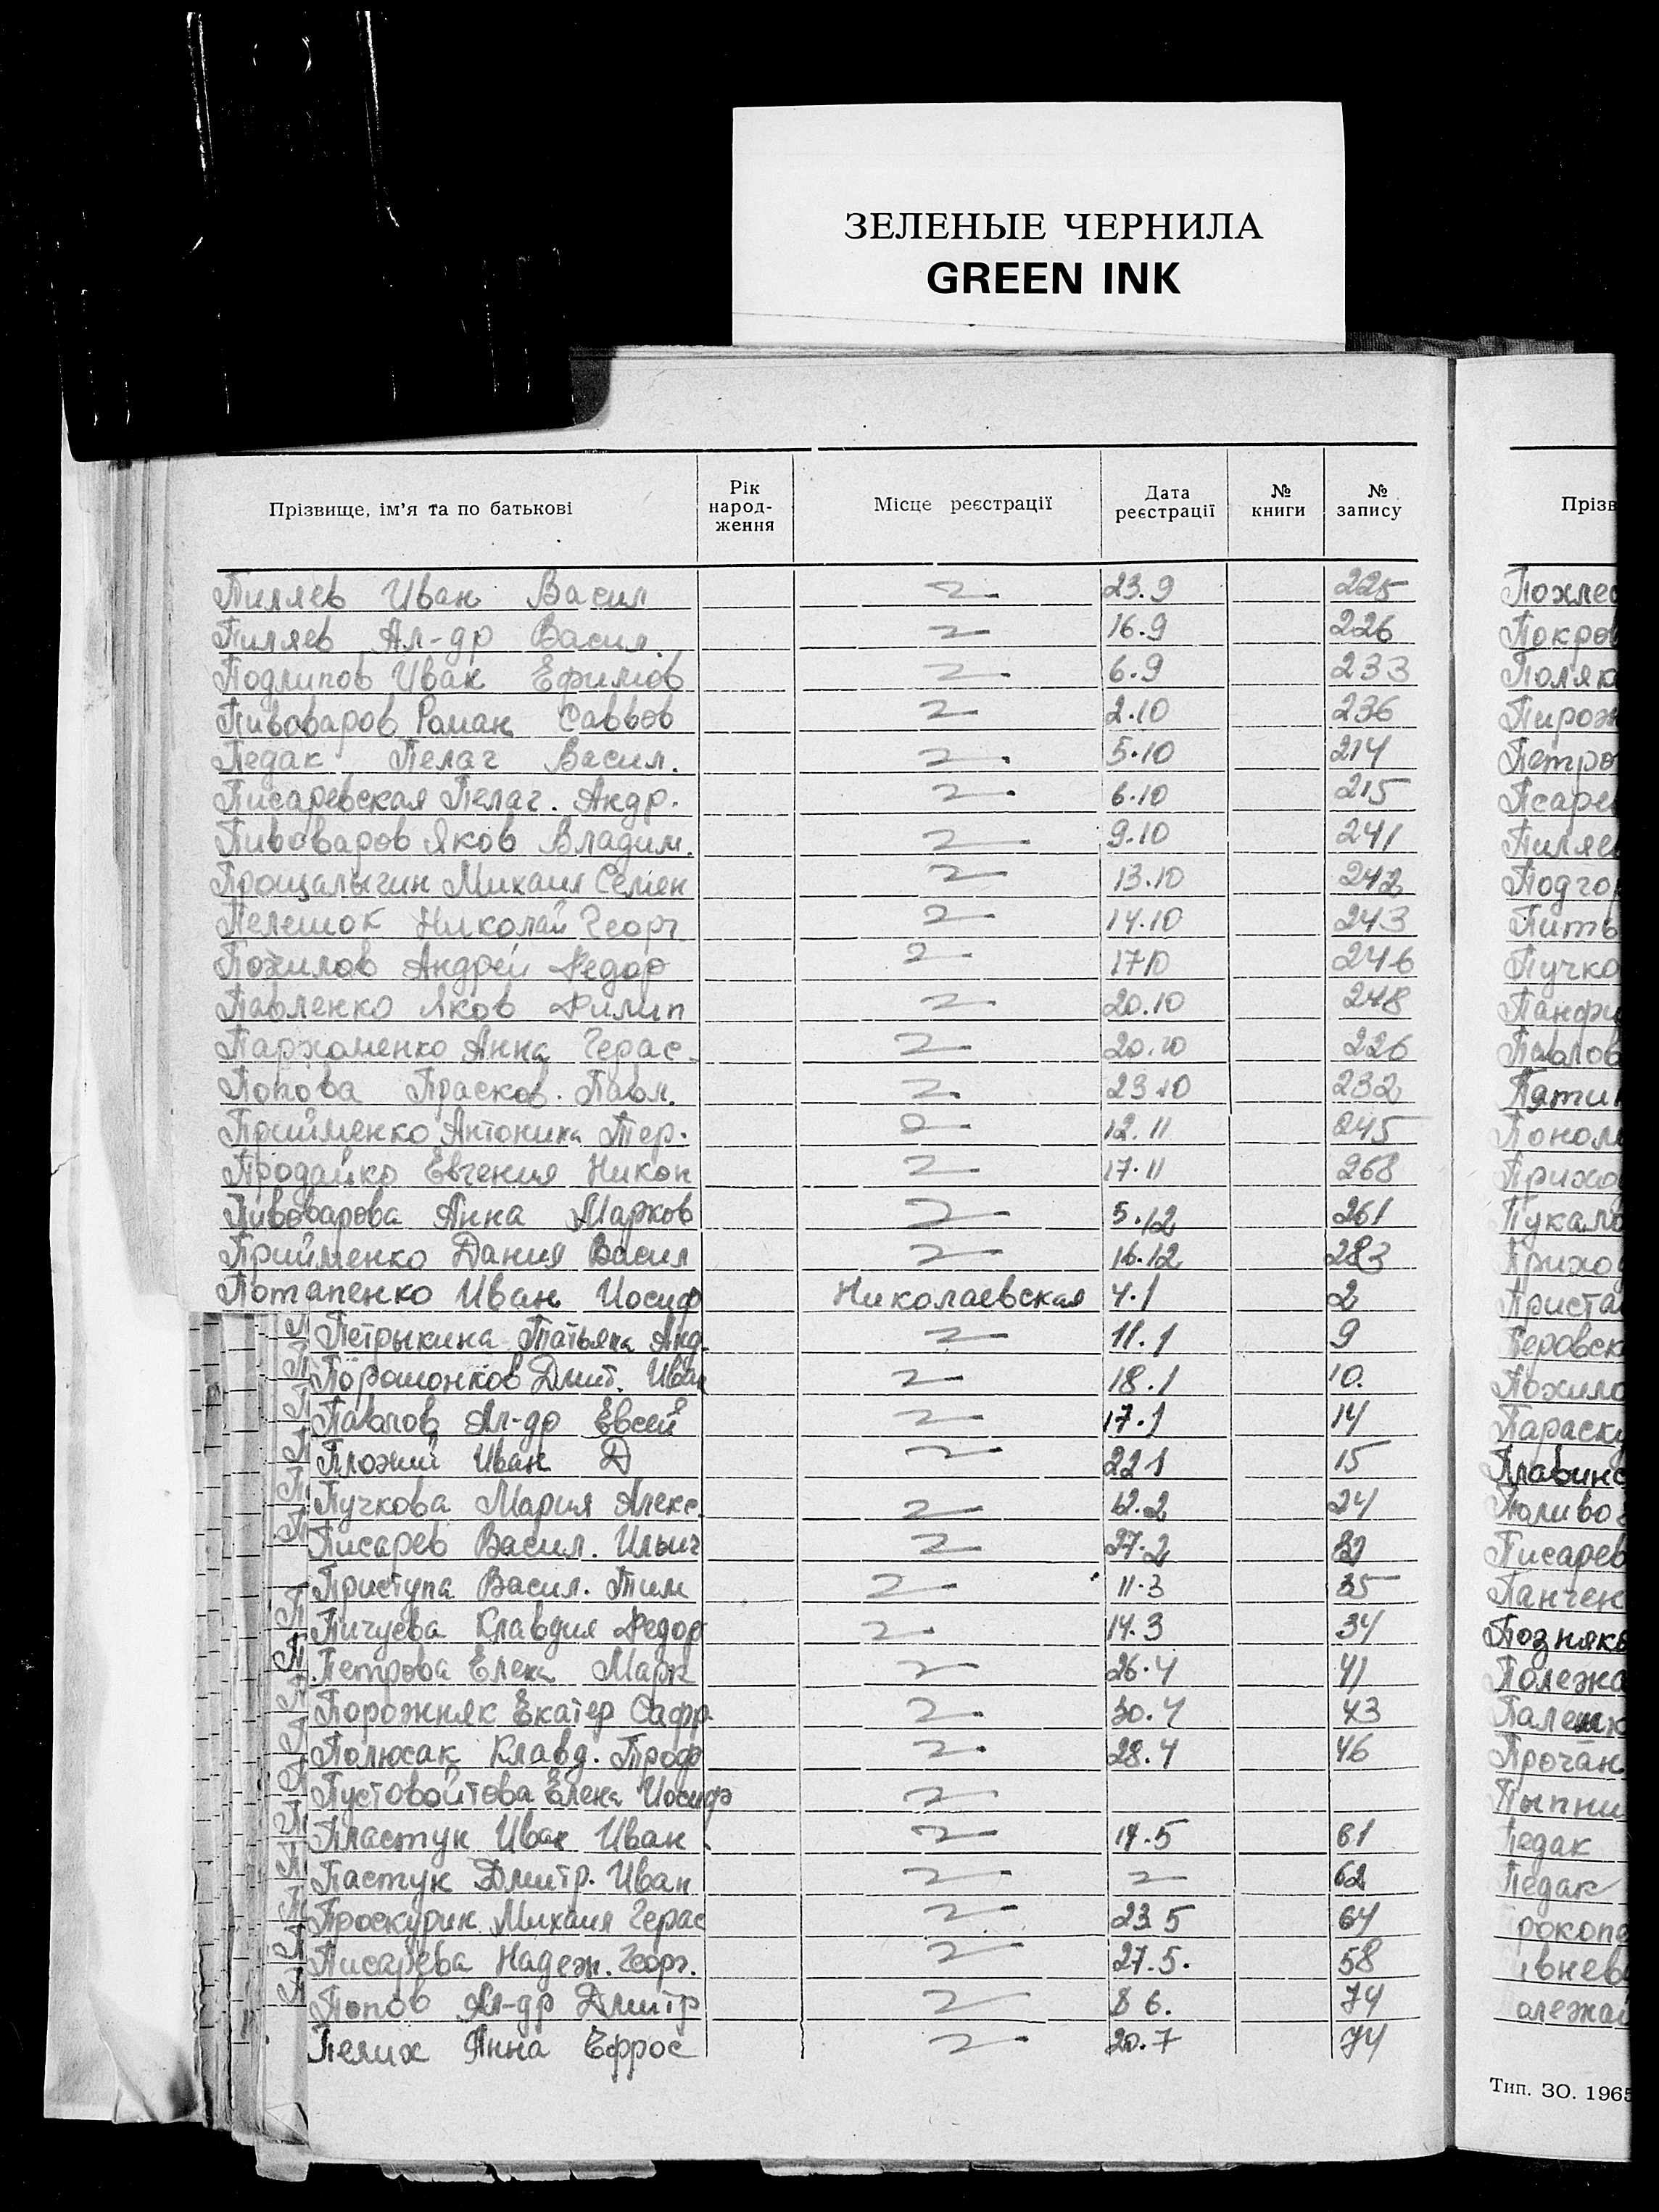 ЗЕЛЕНЫЕ ЧЕРНИЛА
GREEN INK
Прізвище, ім'я та по батькові Рік народження Місце реєстрації Дата реєстрації № книги № запису Прізв
Пиляев Иван Васил 23.9 225 Похлеб
Пиляев Ал-др Васил. 16.9 226 Покров
Подлипов Иван Ефимов 6.9 233 Поляк
Пивоваров Роман Саввов 2.10 236 Пирож
Педак Пелаг Васил. 5.10 214 Петро
Писаревская Пелаг. Андр. 6.10 215 Псарев
Пивоваров Яков Владим. 9.10 241 Пиляев
Прощалыгин Михаил Семен 13.10 242 Подгор
Пелешок Николай Георг 14.10 243 Пить
Пожилов Андрей Федор 17 10 246 Пучко
Павленко Яков Филип 20.10 248 Панфи
Пархоменко Анна Герас. 20.10 226 Павлов
Попова Прасков. Павл. 23 10 232 Пяти
Прийменко Антонина Тер. 12.11 245 Поном
Продайко Евгения Никон 17.11 268 Прихо
Пивоварова Анна Марков 5.12 261 Пукало
Прийменко Дания Васил 16.12 283 Прихо
Потапенко Иван Иосиф Николаевская 4.1 2 Приста
Петрыкина Татьяна Анд. 11.1 9 Перовск
Порошонков Дмит. Иван 18.1 10. Пожило
Павлов Ал-др Евсей 17.1 14 Параск
Пложий Иван Д 22 1 15 Плавинс
Пучкова Мария Алекс. 12.2 24 Наливо
Писарев Васил. Ильич 27.2 Писарев
Приступа Васил. Тим 11.3 35 Панчен
Пичуева Клавдия Федор 14.3 34 Позняко
Петрова Елена Марк 26.4 41 Полежа
Порожняк Екатер Сафр 30.4 43 Палеж
Полюсак Клавд. Троф 28.4 46 Прочан
Пустовойтова Елена Иосиф Пыпни
Пластун Иван Иван 17.5 61 Педак
Пастук Дмитр. Иван 62 Педак
Проскурин Михаил Герас 23 5 64 рокопе
Писарева Надеж. Георг. 27.5. 58 івнев
Попов Ал-др Дмитр 8 6. 74 олежай
Пелих Анна Ефрос 20.7 74
Тип. ЗО. 1965